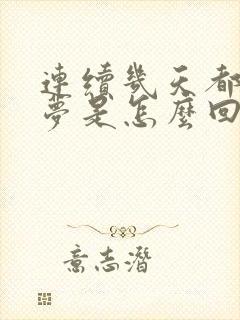 連續幾天都
夢是怎麼回
意志潛